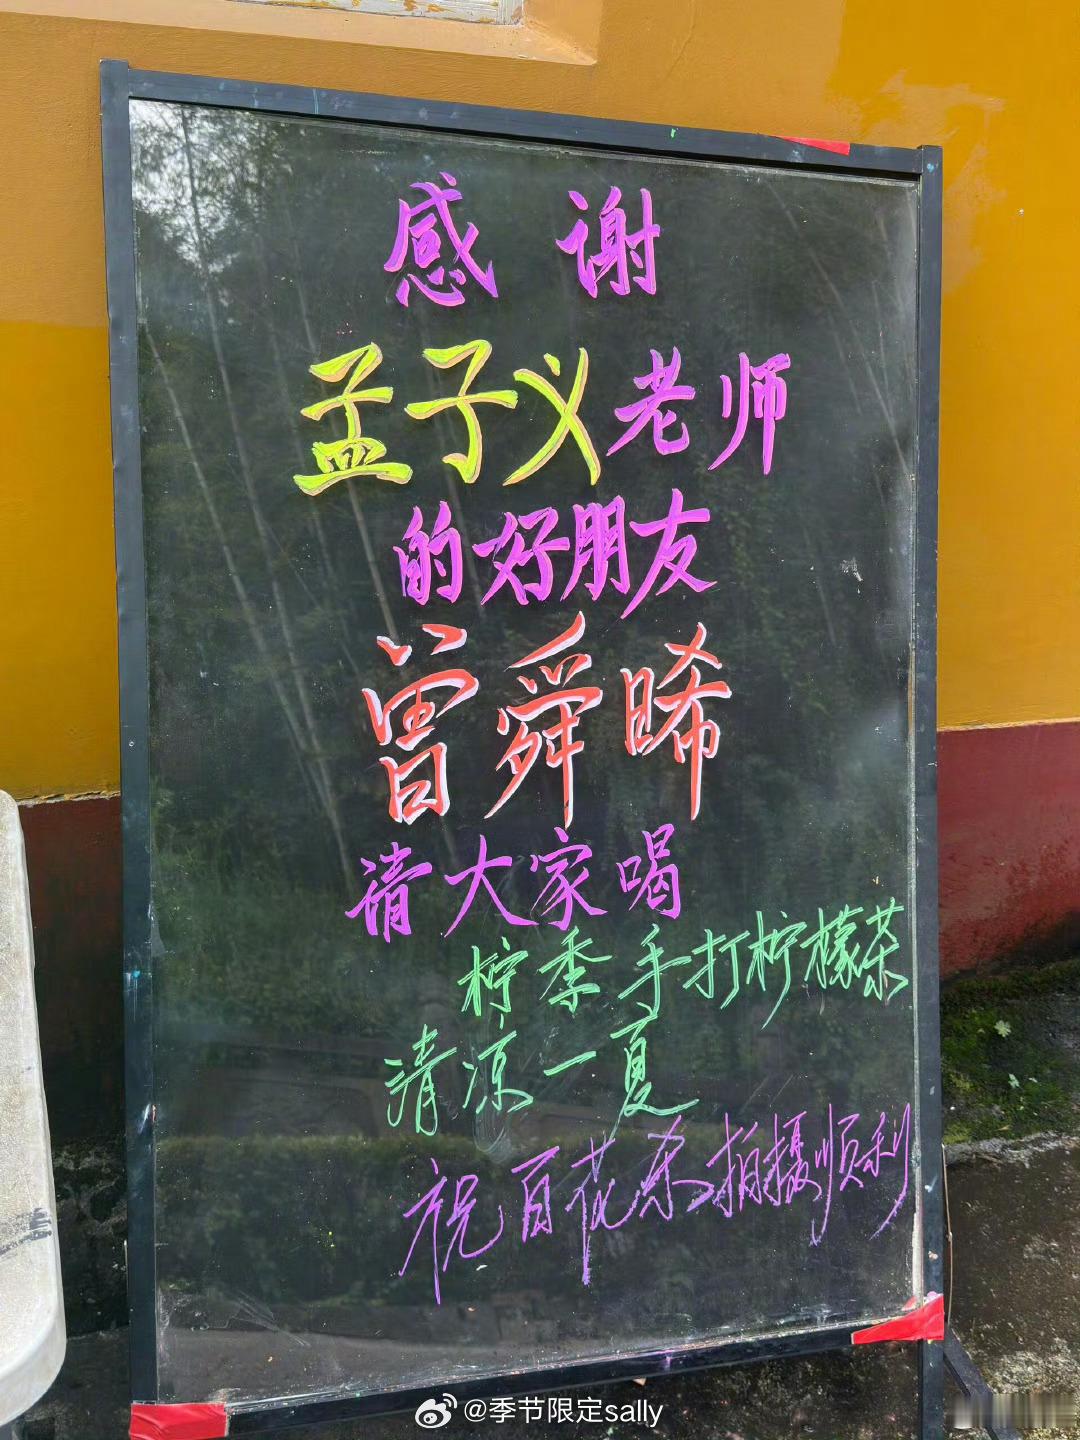 感谢
孟子义老师
的好朋友
曾舜晞
请大家喝
柠季手打柠檬茶
清凉一夏
祝百花杀拍摄顺利
@季节限定sally